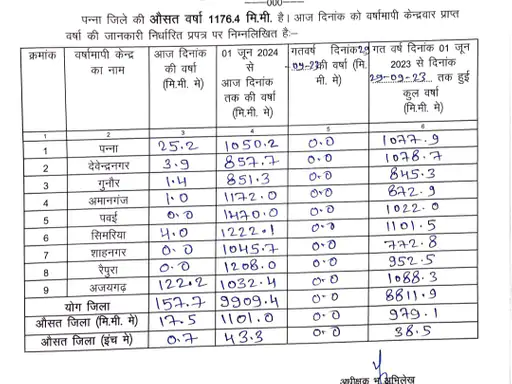 ---000---
पन्ना जिले की औसत वर्षा 1176.4 मि.मी. है। आज दिनांक को वर्षामापी केन्द्रवार प्राप्त
वर्षा की जानकारी निर्धारित प्रपत्र पर निम्नलिखित हैः–
क्रमांक वर्षामापी केन्द्र का नाम आज दिनांक की वर्षा (मि.मि. मे) 01 जून 2024 से आज दिनांक तक की वर्षा (मि.मी. मे) गतवर्ष दिनांक 29-09-23 की वर्षा (मि.मी. मे) गत वर्ष दिनांक 01 जून 2023 से दिनांक 29-09-23 तक हुई कुल वर्षा (मि.मी. मे)
1 2 3 4 5 6
1 पन्ना 25.2 1050.2 0.0 1077.9
2 देवेन्द्रनगर 3.9 857.7 0.0 1078.7
3 गुनौर 1.4 851.3 0.0 845.3
4 अमानगंज 1.0 1172.0 0.0 872.9
5 पवई 0.0 1470.0 0.0 1022.0
6 सिमरिया 4.0 1222.1 0.0 1101.5
7 शाहनगर 0.0 1045.7 0.0 772.8
8 रैपुरा 0.0 1208.0 0.0 952.5
9 अजयगढ़ 122.2 1032.4 0.0 1088.3
योग जिला 157.7 9909.4 0.0 8811.9
औसत जिला (मि.मी. मे) 17.5 1101.0 0.0 979.1
औसत जिला (इंच मे) 0.7 43.3 0.0 38.5
अधीक्षक भू अभिलेख